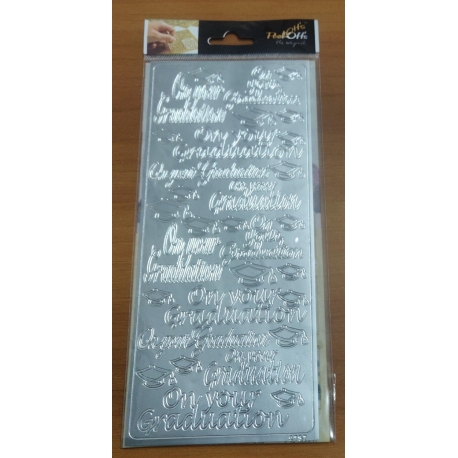 Peel Offs
On your
Graduation
On
your
Graduation
On your
Graduation
On your Graduation
On your
Graduation
On your
Graduation
On
your
Graduation
On your
Graduation
On your Graduation
On your
Graduation
On your
Graduation